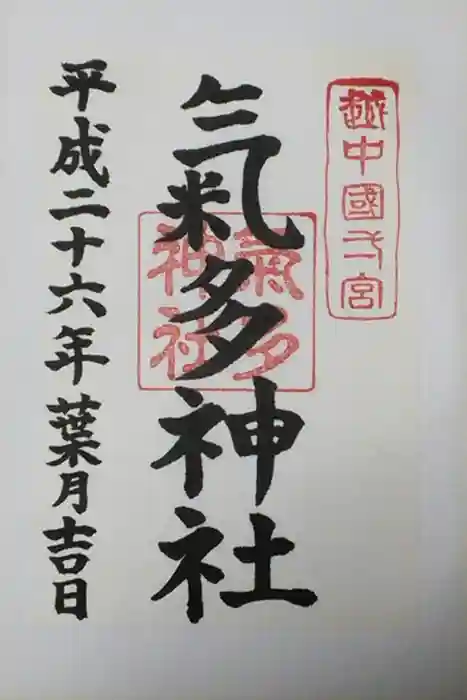 越中國一宮
氣多神社
氣多神社
平成二十六年葉月吉日